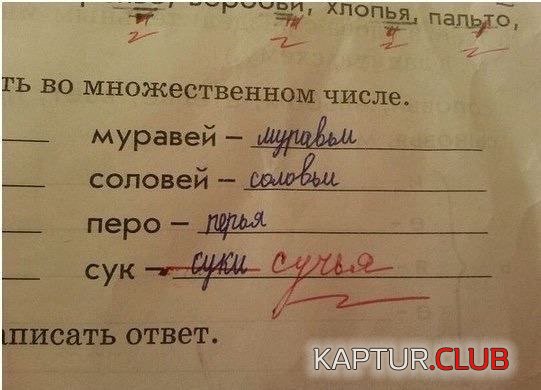 воробьи, хлопья, пальто,
ть во множественном числе.
муравей – муравьи
соловей – соловьи
перо – перья
сук – суки сучья
аписать ответ.
KAPTUR.CLUB